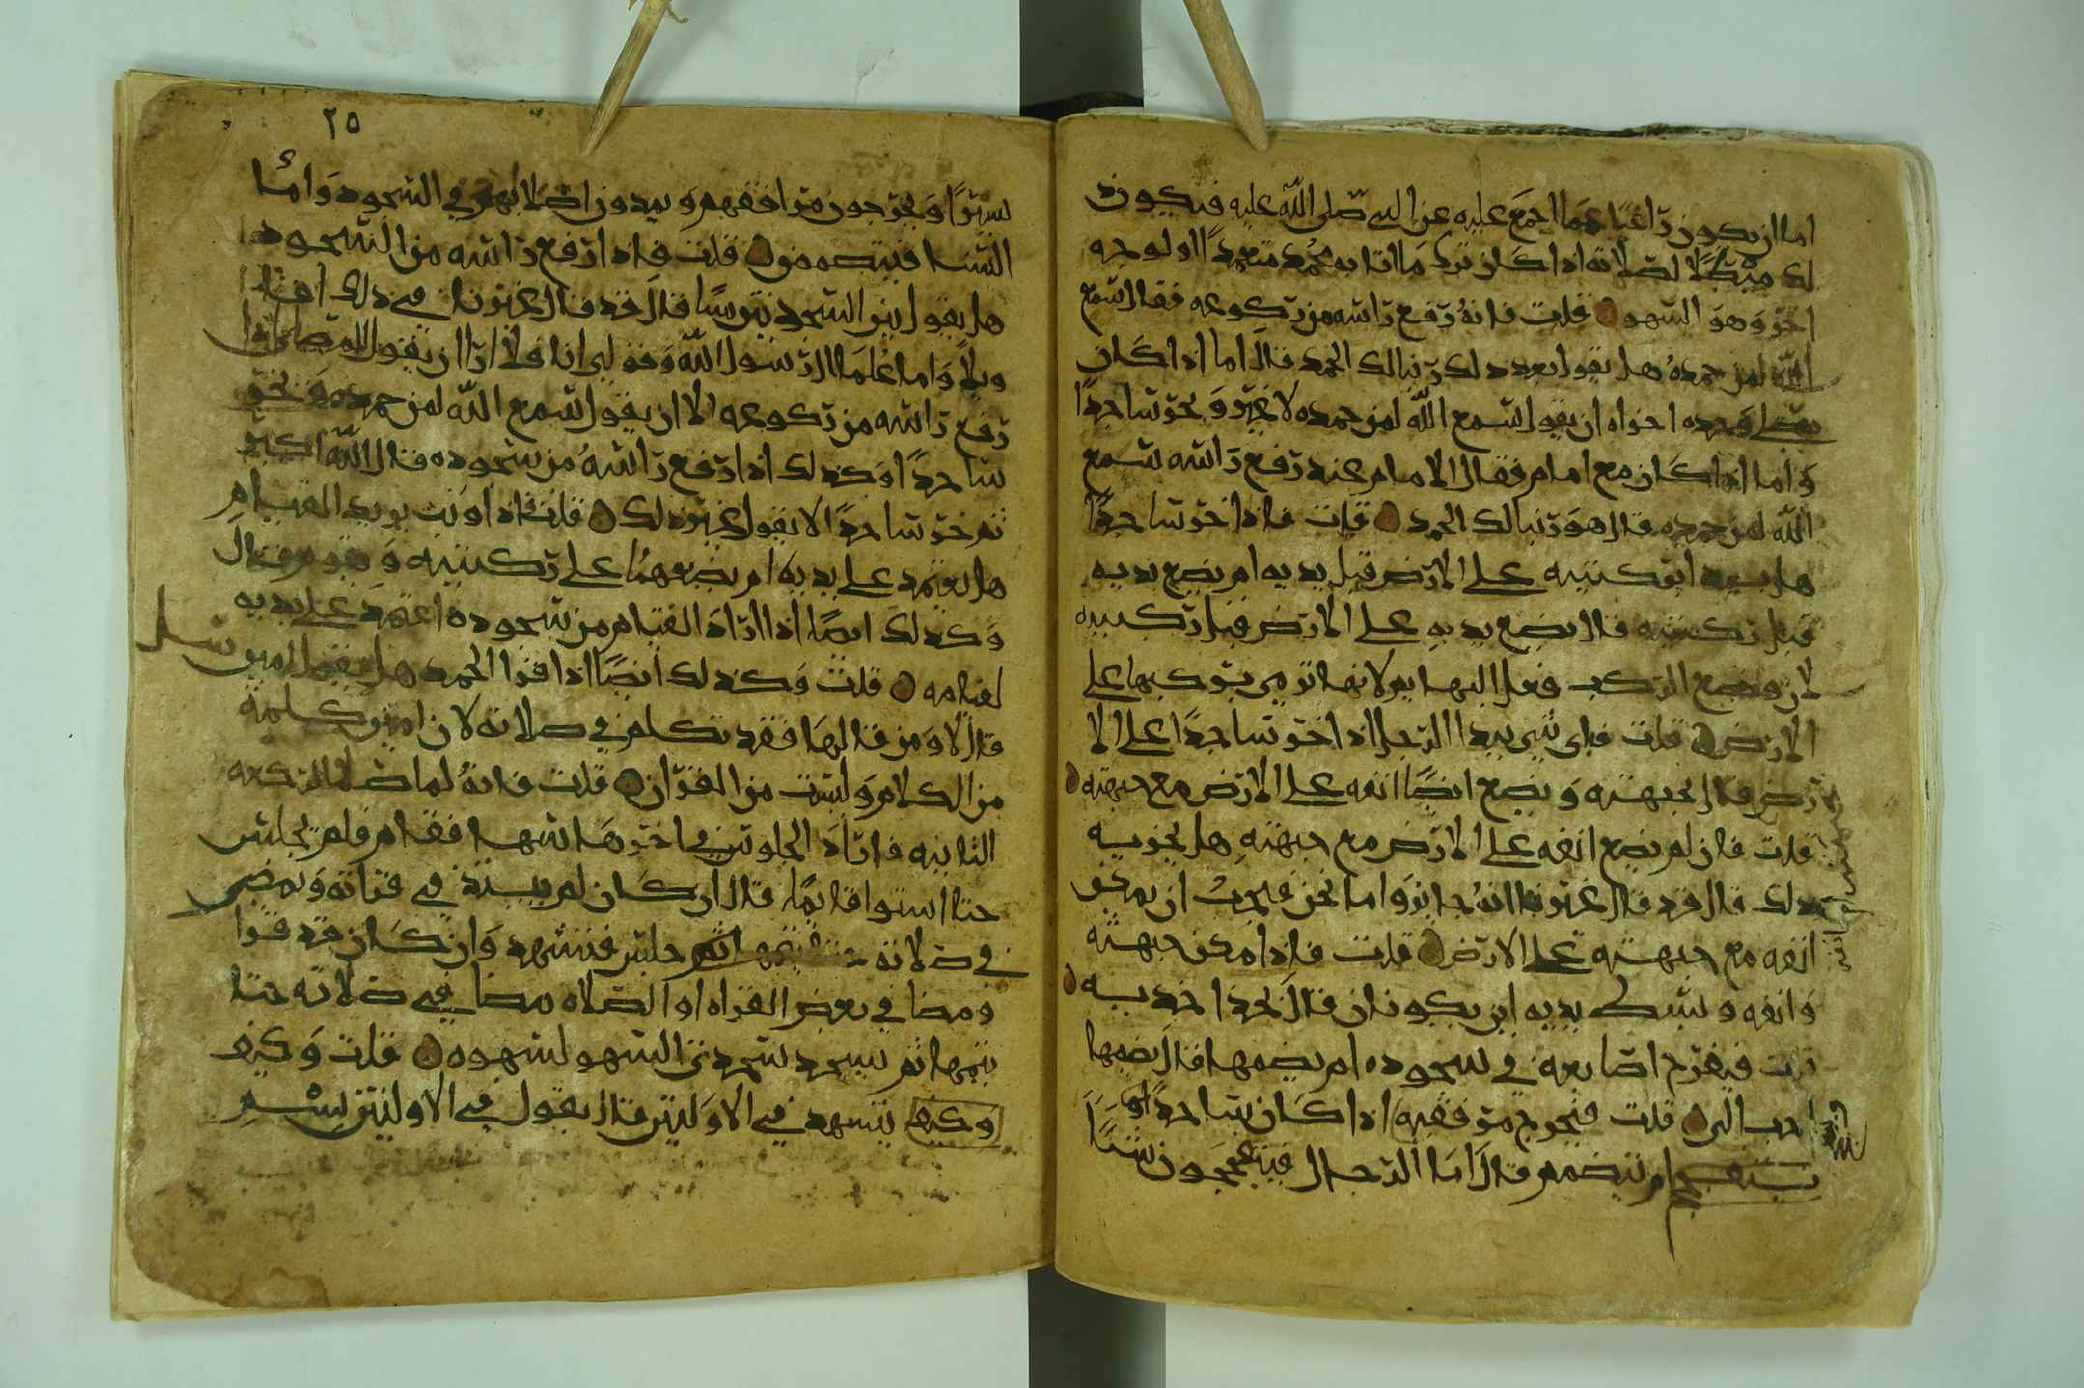 اما ان يكون راغبا عما اجمع عليه عن النبي صلى الله عليه فيكون
لك مبطلا لصلاته اذا كان ترك ما اتا به محمد متعمدا او لوجه
اخر وهو السهو قلت فانه رفع راسه من ركوعه فقال سمع
الله لمن حمده هل يقول بعد ذلك ربنا لك الحمد قال اما اذا كان
يصلي وحده اجزاه ان يقول سمع الله لمن حمده لا غير ويخر ساجدا
واما اذا كان مع امام فقال الامام عند رفع راسه سمع
الله لمن حمده قال هو ربنا لك الحمد قلت فاذا خر ساجدا
هل ركبتيه على الارض قبل يديه ام يضع يديه
قبل ركبتيه قال يضع يديه على الارض قبل ركبتيه
لان وضع الركب فعل
الارض قلت فباي شي يبدا الرجل اذا خر ساجدا على الا
رض قال بجبهته ويضع ايضا انفه على الارض مع جبهته
قلت فان لم يضع انفه على الارض مع جبهته هل يجزيه
ذلك قال قد قال غيرنا انه جايز واما نحن فيجب ان يمكن
انفه مع جبهته على الارض قلت فاذا مكن جبهته
وانفه وبسط يديه اين يكونان قال بحذا خديه
قلت فيفرج اصابعه في سجوده ام يضمها قال يضمها
احب الي قلت فيخرج مرفقيه اذا كان ساجدا او
ام ينضمم قال اما الرجال شيا
٢٥
يسيرا ويخرجون مرافقهم ويبدون اصلابهم في السجود واما
النسا فينضممن قلت فاذا رفع راسه من السجود
هل يقول بين السجدتين شيا قال قد قال غيرنا في ذلك
وبلا واما علما ال رسول الله وقولي انا فلا ارا ان يقول المصلي اذا
رفع راسه من ركوعه الا ان يقول سمع الله لمن حمده ويخر
ساجدا وكذلك اذا رفع راسه من سجوده قال الله اكبر
ثم خر ساجدا لا يقول غير ذلك قلت فاذا وثب يريد القيام
هل يعتمد على يديه ام يضعهما على ركبتيه ويقوم قال
وكذلك ايضا اذا اراد القيام من سجوده اعتمد على يديه
لقيامه قلت وكذلك ايضا اذا قرا الحمد هل يقول امين
قال لا ومن قالها فقد تكلم في صلاته لان امين كلمة
من الكلام وليست من القران قلت فانه لما صلا الركعه
الثانيه فاراد الجلوس في اخرها سها فقام فلم يجلس
حتا استوا قايما قال ان كان لم يبتد في قراته ويمضي
في صلاته جلس فتشهد وان كان قد قرا
ومضا في بعض القراه او الصلاه مضا في صلاته حتا
يتمها ثم يسجد سجدتي السهو لسهوه قلت وكيف
وكيف يتشهد في الاولتين قال يقول في الاولتين بسم